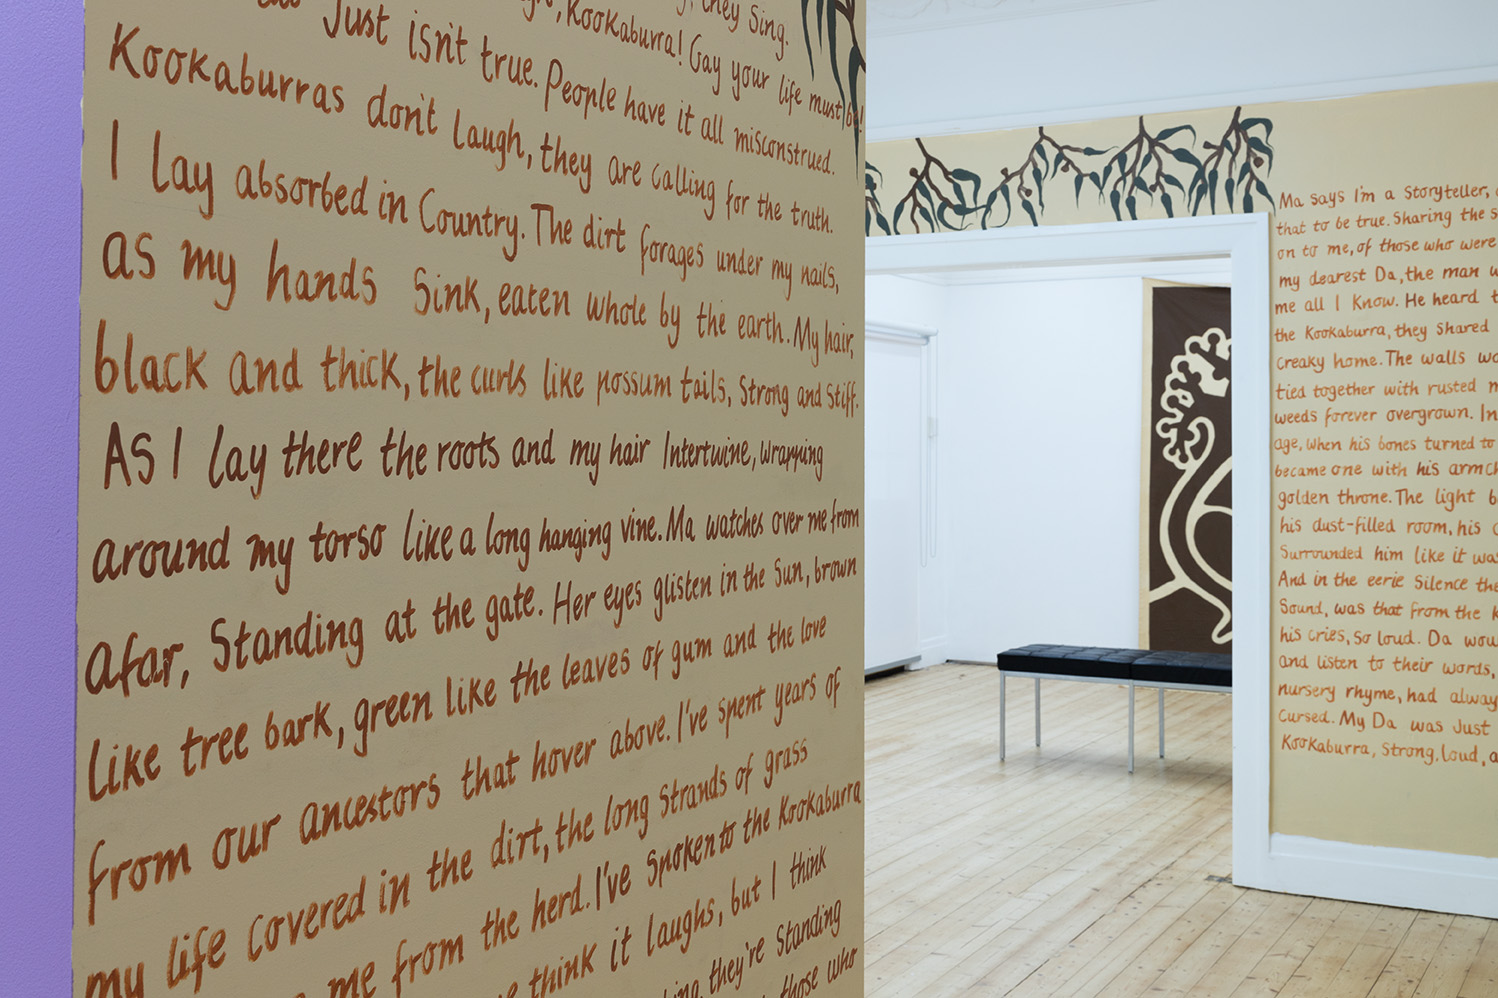 they Sing.
Kookaburra! Gay your life must be!
Just isn't true. People have it all misconstrued.
Kookaburras don't laugh, they are calling for the truth.
I lay absorbed in Country. The dirt forages under my nails,
as my hands Sink, eaten whole by the earth. My hair,
black and thick, the curls like possum tails, Strong and Stiff.
As I lay there the roots and my hair Intertwine, wrapping
around my torso like a long hanging vine. Ma watches over me from
afar, Standing at the gate. Her eyes glisten in the Sun, brown
like tree bark, green like the leaves of gum and the love
from our ancestors that hover above. I've spent years of
my life covered in the dirt, the long Strands of grass
me from the herd. I've Spoken to the Kookaburra
think it laughs, but I think
they're Standing
those who
Ma says I'm a Storyteller,
that to be true. Sharing the s
on to me, of those who were
my dearest Da, the man w
me all I Know. He heard t
the Kookaburra, they Shared
Creaky home. The walls wo
tied together with rusted n
weeds forever overgrown. In
age, when his bones turned to
became one with his armch
golden throne. The light b
his dust-filled room, his c
Surrounded him like it was
And in the eerie Silence the
Sound, was that from the K
his cries, So loud. Da wou
and listen to their words,
nursery rhyme, had alway
Cursed. My Da was Just
Kookaburra, Strong, loud, a